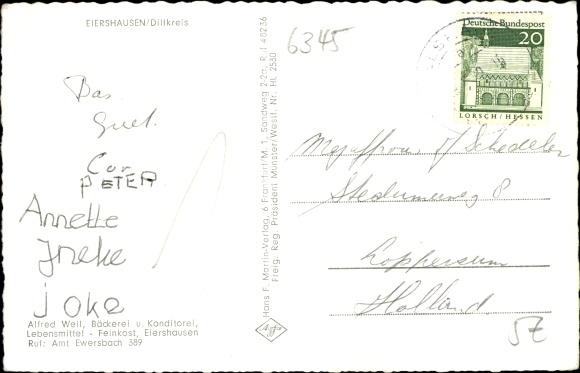 EIERSHAUSEN/Dillkreis
6345
Deutsche Bundespost
20
LORSCH/HESSEN
Bas
Guel.
Cor
PETER
Annette
Ineke
joke
Alfred Weil, Bäckerei u. Konditorei,
Lebensmittel - Feinkost, Eiershausen
Ruf: Amt Ewersbach 389
Hans F. Martin-Verlag, 6 Frankfurt/M. 1, Sandweg 2-2a, Ruf 40236
Freig. Reg. Präsident Münster/Westf. Nr. HL 2530
Agfa
Stedumerweg 8
Loppersum
Holland.